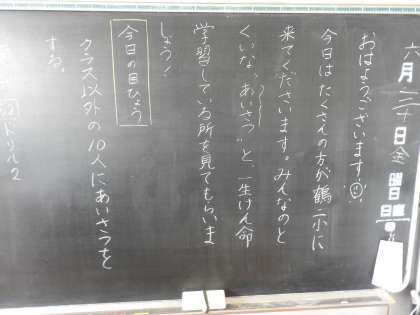 六月二十日金曜日
日直
おはようございます
今日はたくさんの方が鶴二小に
来てくださいます。みんなのと
くいな、"あいさつ"と、一生けん命
学習している所を見てもらいま
しょう!
今日の目ひょう
クラス以外の10人にあいさつを
する。
ドリル2